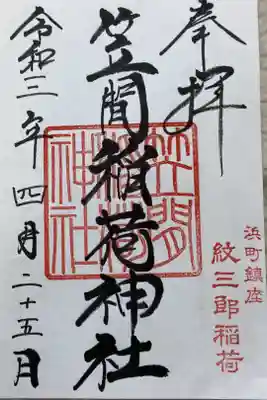 奉拝
浜町鎮座
紋三郎稲荷
笠間稲荷神社
笠間稲荷神社
令和三年四月二十五月